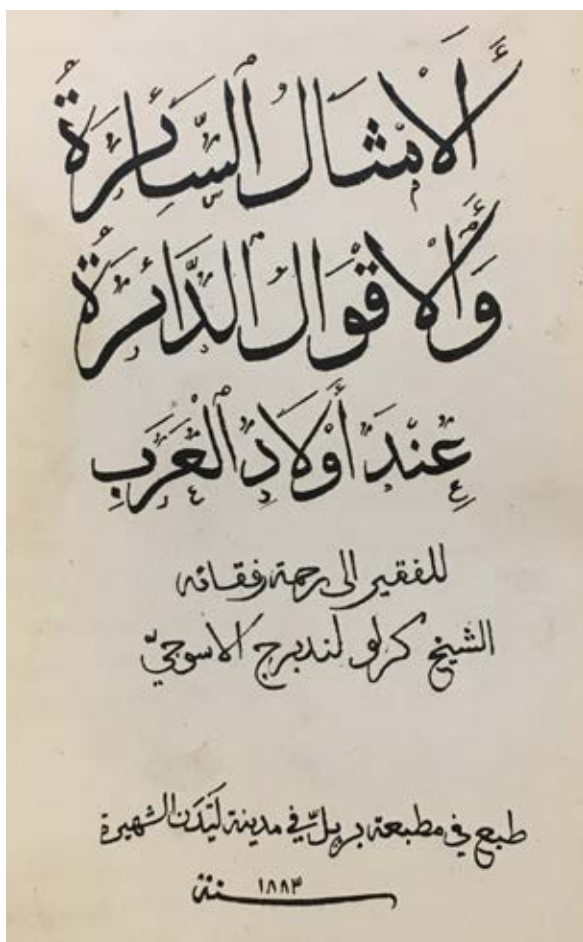 أَلْأَمْثَالُ ٱلسَّائِرَةُ
وَٱلْأَقْوَالُ ٱلدَّائِرَةُ
عِنْدَ أَوْلَادِ ٱلْعَرَبِ
للفقير الى رحمة رفقائه
الشيخ كرلو لندبرج الاسوجيّ
طبع في مطبعة بريلّ في مدينة ليَدن الشهيرة
سنة ١٨٨٣